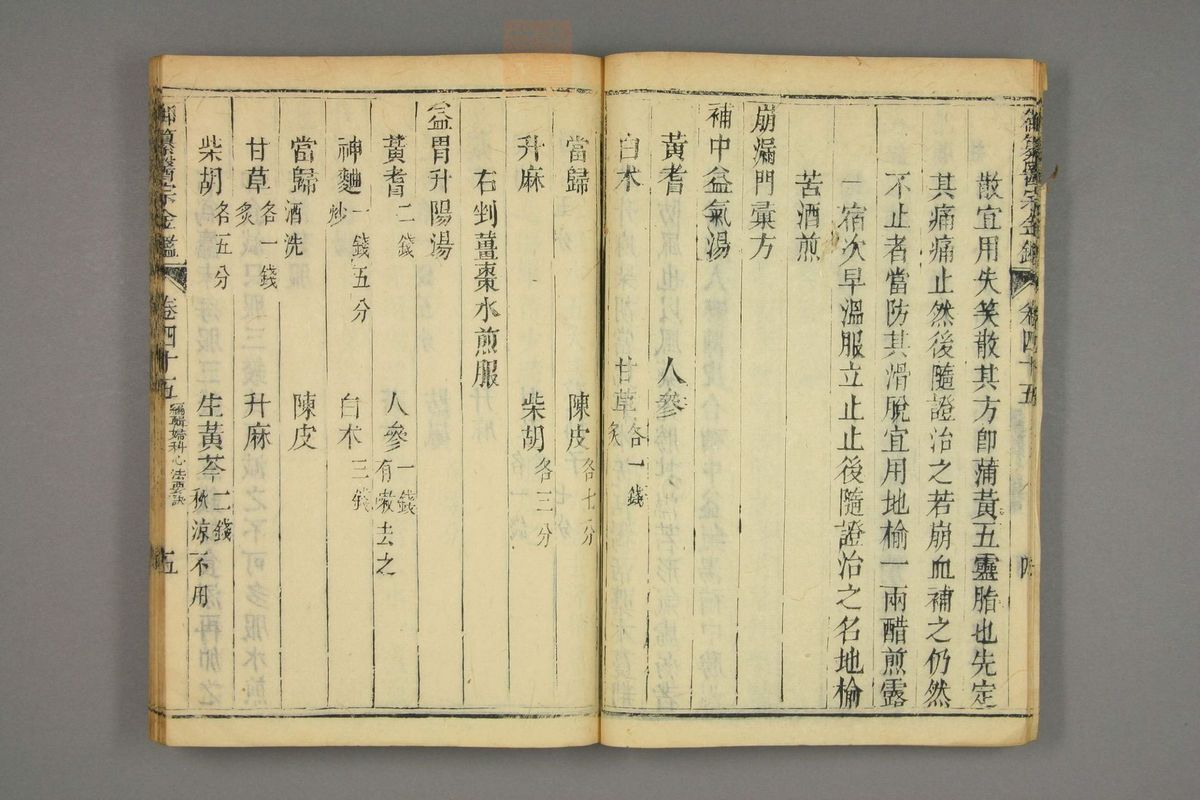 散宜用失笑散其方卽蒲黃五靈脂也先定
其痛痛止然後隨證治之若崩血補之仍然
不止者當防其滑脫宜用地榆一兩醋煎露
一宿次早溫服立止止後隨證治之名地榆
苦酒煎
崩漏門彙方
補中益氣湯
黃耆 人參
白朮 甘草炙 各一錢
當歸 陳皮各七分
升麻 柴胡各三分
右剉薑棗水煎服
益胃升陽湯
黃耆二錢 人參一錢 有嗽去之
神麯炒 一錢五分 白朮三錢
當歸酒洗 陳皮
甘草炙 各一錢 升麻
柴胡各五分 生黃芩二錢 秋凉不用
御纂醫宗金鑑 卷四十五 編輯婦科心法要訣 五
御纂醫宗金鑑 卷四十五